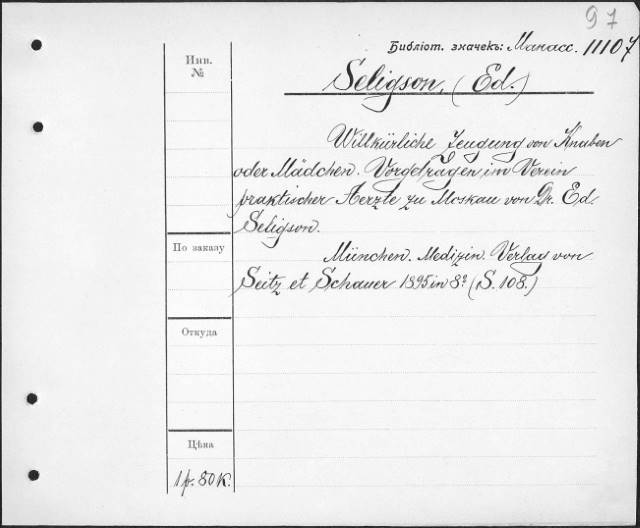 97
Библіот. значекъ: Манасс. 11107
Инв.
№
Seligson, (Ed.)
Willkürliche Zeugung von Knaben
oder Mädchen. Vorgetragen im Verein
praktischer Aerzte zu Moskau von Dr. Ed.
Seligson.
По заказу
München. Medizin. Verlag von
Seitz et Schauer 1895 in 8º (S. 108.)
Откуда
Цѣна
1 р. 80 к.